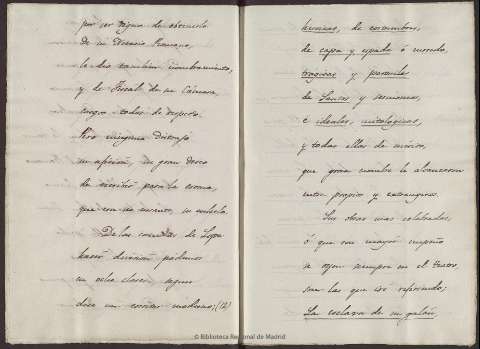 por ser digno de obtenerlo
de su Erario Romano,
le dio tambien nombramiento,
y de Fiscal de su Cámara,
cargos todos de respeto.
Pero ninguno distrajo
su aficion, su gran deseo
de escribir para la escena,
que era su norte, su anhelo.
De las comedias de Lope
hacer division podemos
en ocho clases, segun
dice un escritor moderno; (12)
heroicas, de costumbres,
de capa y espada ó enredo
tragicas y pastoriles
de Santos y
é ideales, mitológicas,
y todas ellas de mérito,
que gran nombre le alcanzaron
entre propios y extrangeros.
Sus obras mas celebradas,
ó que con mayor empeño
se oyen siempre en el teatro,
son las que iré refiriendo;
La esclava de su galán,
© Biblioteca Regional de Madrid